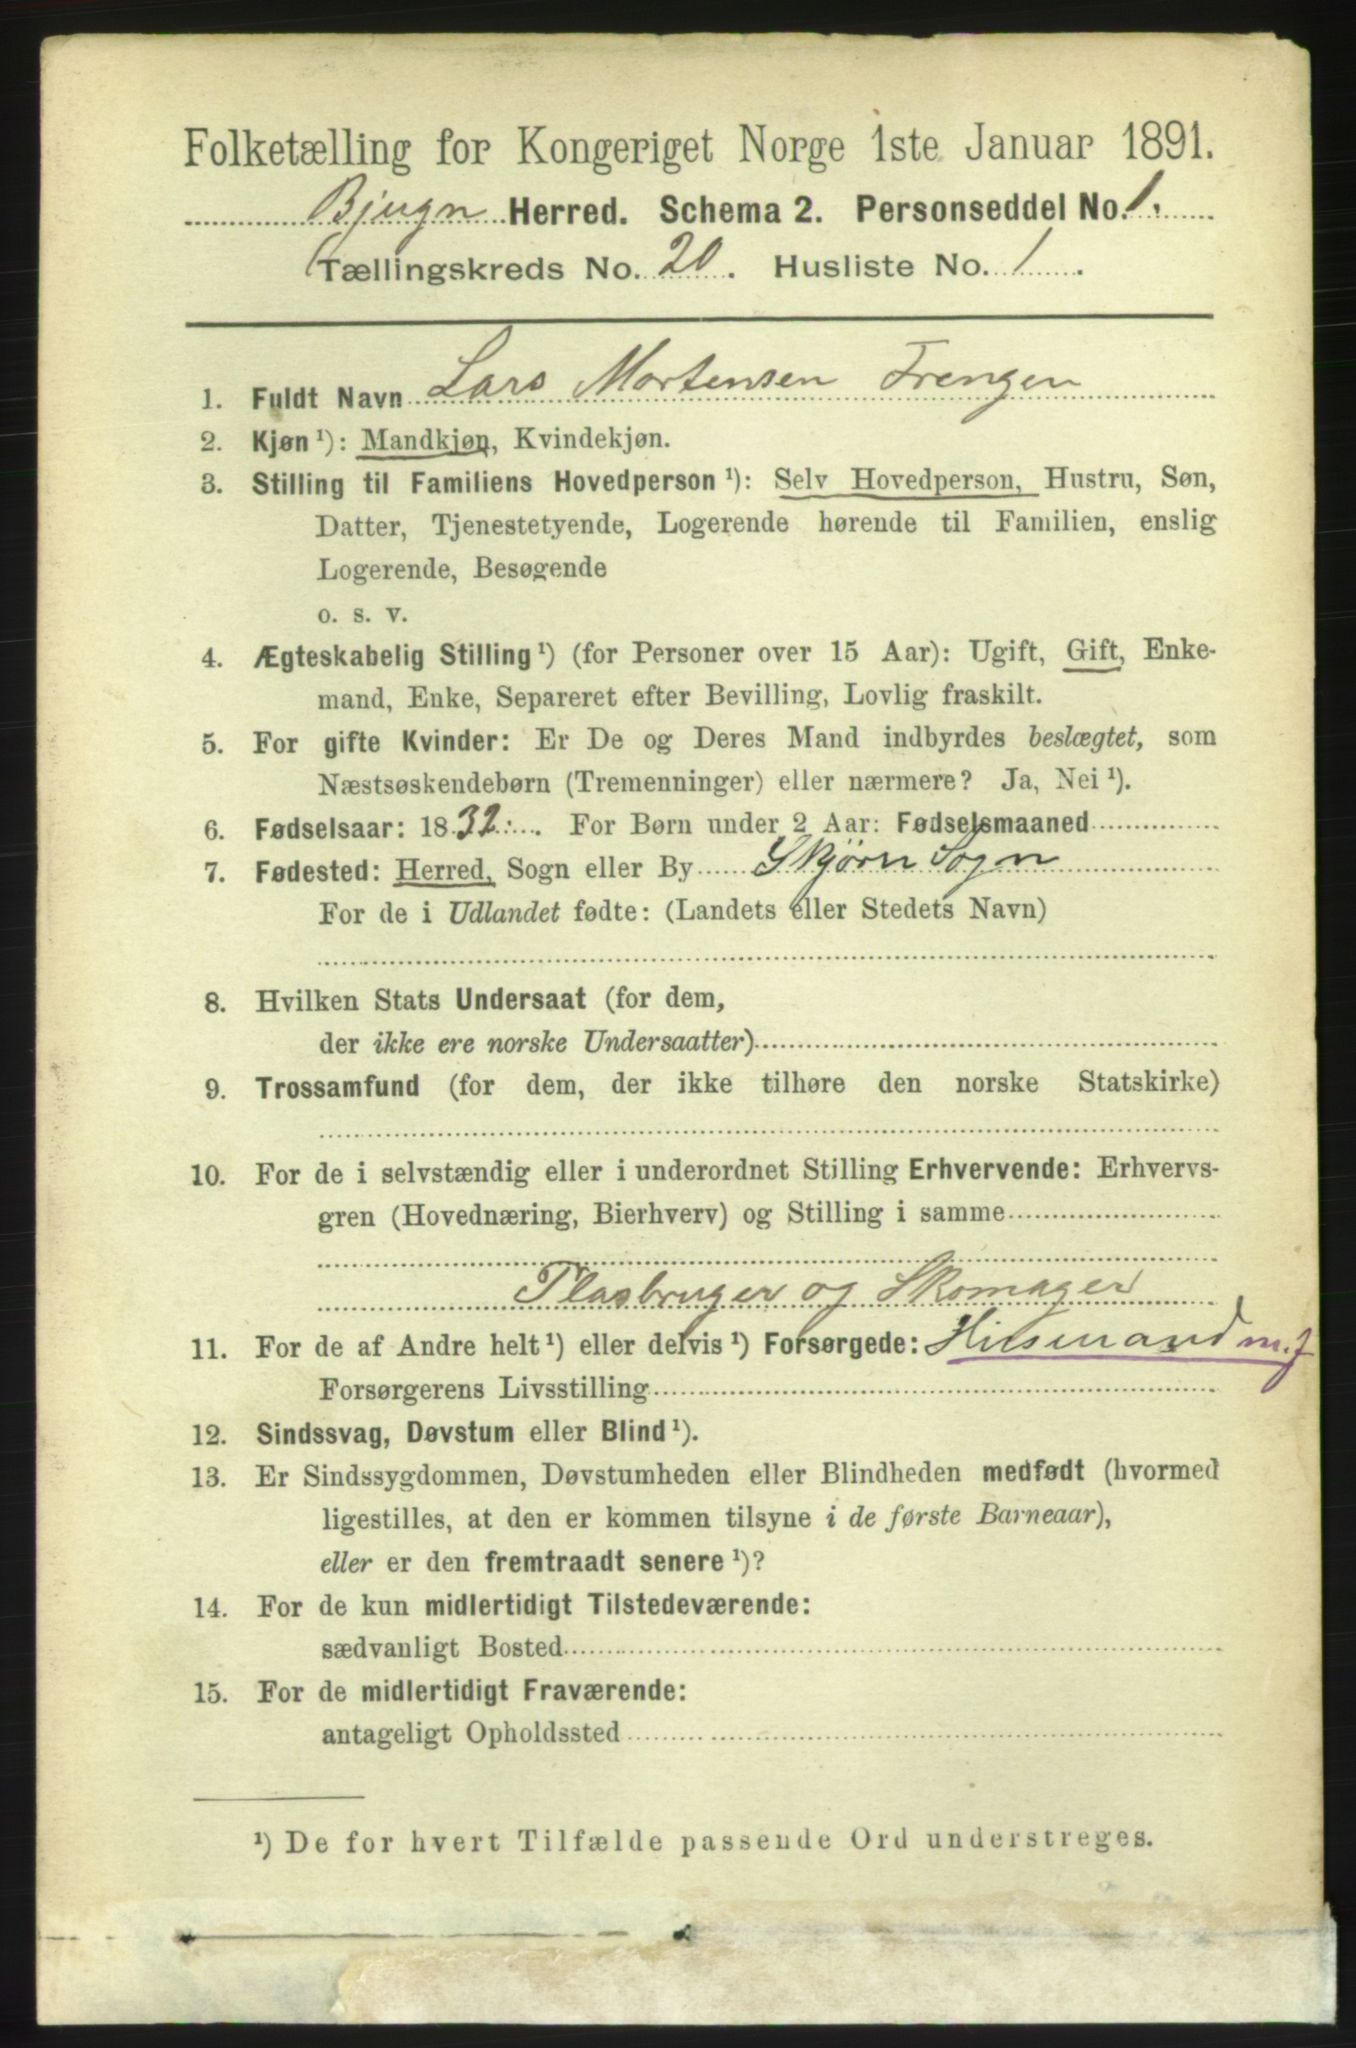 Folketælling for Kongeriget Norge 1ste Januar 1891.
Bjugn Herred. Schema 2. Personseddel No. 1.
Tællingskreds No. 20. Husliste No. 1.
1. Fuldt Navn Lars Mortensen Trengen
2. Kjøn ¹): Mandkjøn, Kvindekjøn.
3. Stilling til Familiens Hovedperson ¹): Selv Hovedperson, Hustru, Søn,
Datter, Tjenestetyende, Logerende hørende til Familien, enslig
Logerende, Besøgende
o. s. v.
4. Ægteskabelig Stilling ¹) (for Personer over 15 Aar): Ugift, Gift, Enke-
mand, Enke, Separeret efter Bevilling, Lovlig fraskilt.
5. For gifte Kvinder: Er De og Deres Mand indbyrdes beslægtet, som
Næstsøskendebørn (Tremenninger) eller nærmere? Ja, Nei ¹).
6. Fødselsaar: 1832. For Børn under 2 Aar: Fødselsmaaned
7. Fødested: Herred, Sogn eller By Skjørn Sogn
For de i Udlandet fødte: (Landets eller Stedets Navn)
8. Hvilken Stats Undersaat (for dem,
der ikke ere norske Undersaatter)
9. Trossamfund (for dem, der ikke tilhøre den norske Statskirke)
10. For de i selvstændig eller i underordnet Stilling Erhvervende: Erhvervs-
gren (Hovednæring, Bierhverv) og Stilling i samme
Plasbruger og Skomager
11. For de af Andre helt ¹) eller delvis ¹) Forsørgede: Husmand m. j
Forsørgerens Livsstilling
12. Sindssvag, Døvstum eller Blind ¹).
13. Er Sindssygdommen, Døvstumheden eller Blindheden medfødt (hvormed
ligestilles, at den er kommen tilsyne i de første Barneaar),
eller er den fremtraadt senere ¹)?
14. For de kun midlertidigt Tilstedeværende:
sædvanligt Bosted
15. For de midlertidigt Fraværende:
antageligt Opholdssted
¹) De for hvert Tilfælde passende Ord understreges.